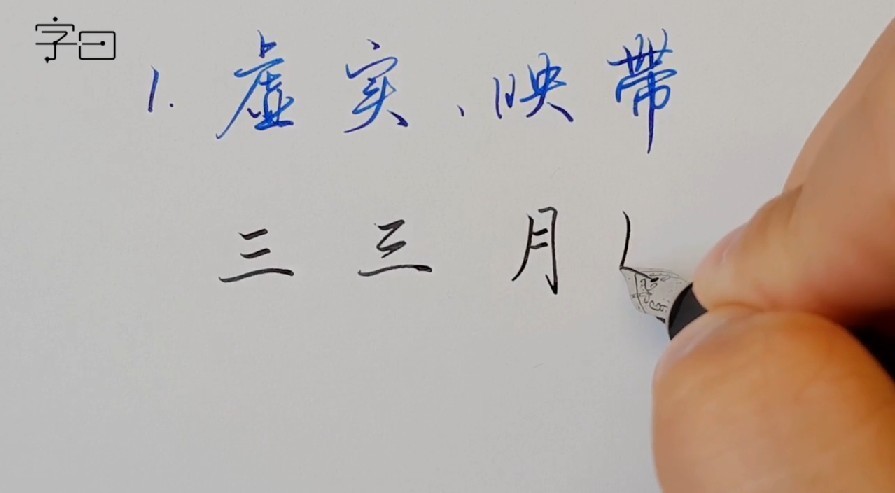 字曰
1. 虚实、映带
三 三 月